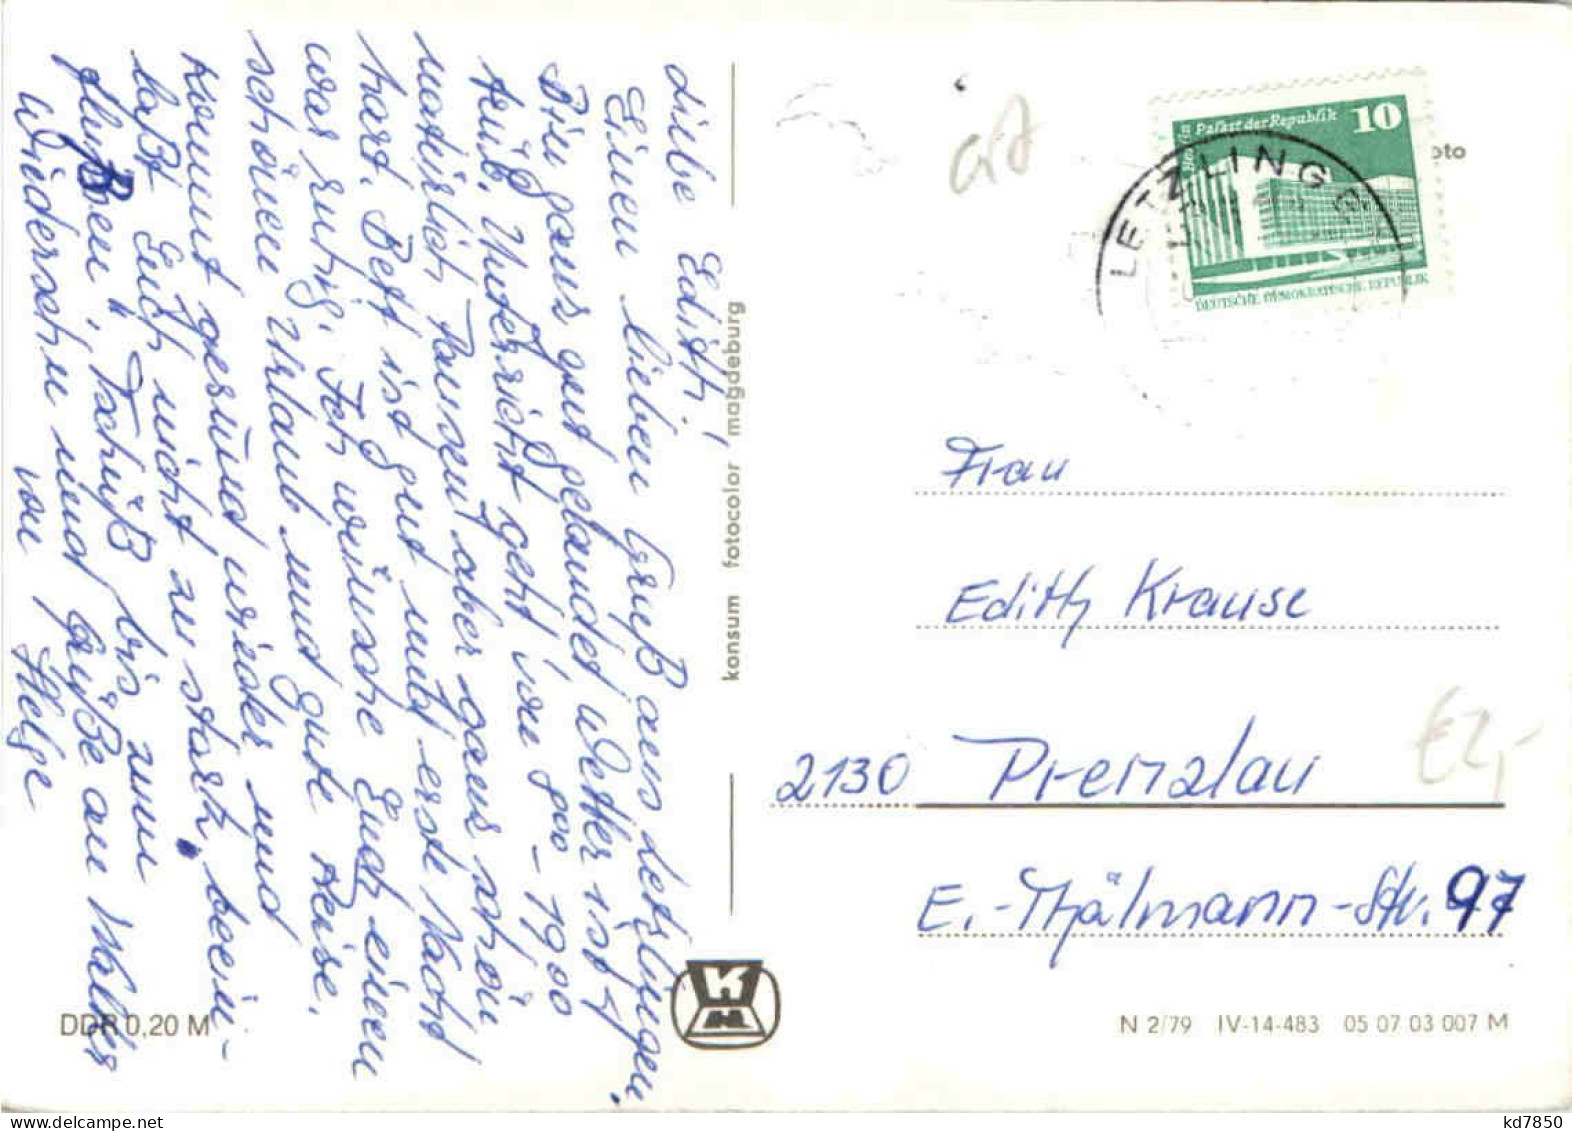 Liebe Edith!
Einen lieben Gruß aus Letzlingen.
Bin ganz gut gelandet Wetter ist
trüb. Unterricht geht von 800 – 1900
natürlich Pausen aber ganz schön
hart. Bett ist gut und erste Nacht
war ruhig. Ich wünsche Euch einen
schönen Urlaub und gute Reise.
Kommt gesund wieder und
laßt Euch nicht zu stark "beein-
flußen", Tschüß bis zum
Wiedersehn und Grüße an Walter
von Helge
DDR 0,20 M
konsum fotocolor magdeburg
Berlin Palast der Republik 10
DEUTSCHE DEMOKRATISCHE REPUBLIK
LETZLINGEN
oto
Frau
Edith Krause
2130 Prenzlau
E.-Thälmann-Str. 97
€2,-
N 2/79 IV-14-483 05 07 03 007 M
kd7850